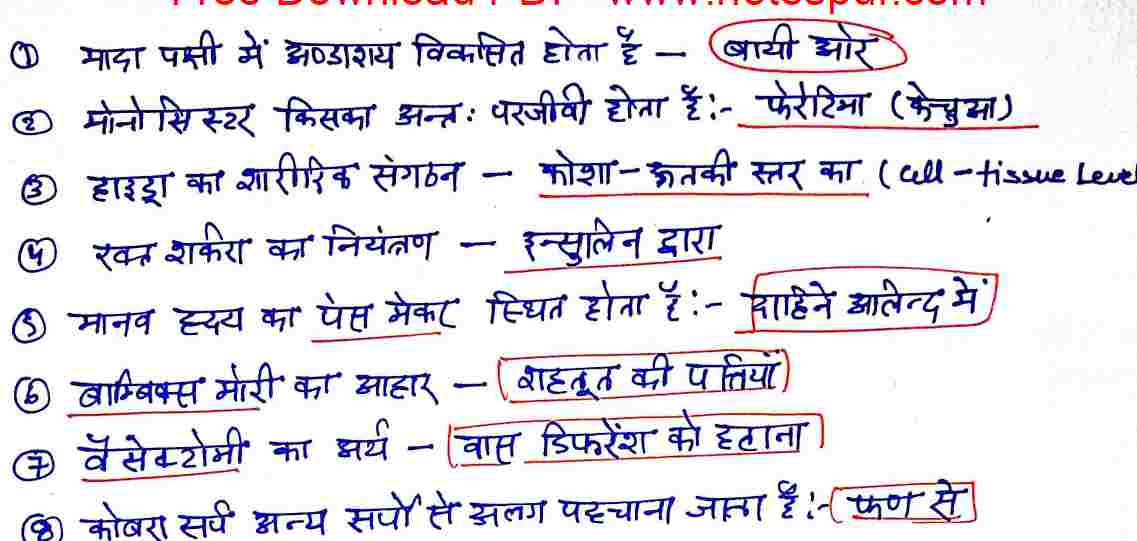 Free Download PDF www.notespdf.com
① मादा पक्षी में अण्डाशय विकसित होता है – बायी ओर
② मोनोसिस्टर किसका अन्तः परजीवी होता है:- फेरेटिमा (केचुआ)
③ हाइड्रा का शारीरिक संगठन – कोशा-ऊतकी स्तर का (Cell-tissue Level
④ रक्त शर्करा का नियंत्रण – इन्सुलिन द्वारा
⑤ मानव हृदय का पेस मेकर स्थित होता है:- दाहिने आलिन्द में
⑥ बाम्बिक्स मोरी का आहार – शहतूत की पत्तियाँ
⑦ वैसेक्टोमी का अर्थ – वास डिफरेंश को हटाना
⑧ कोबरा सर्प अन्य सर्पों से अलग पहचाना जाता है:- फण से